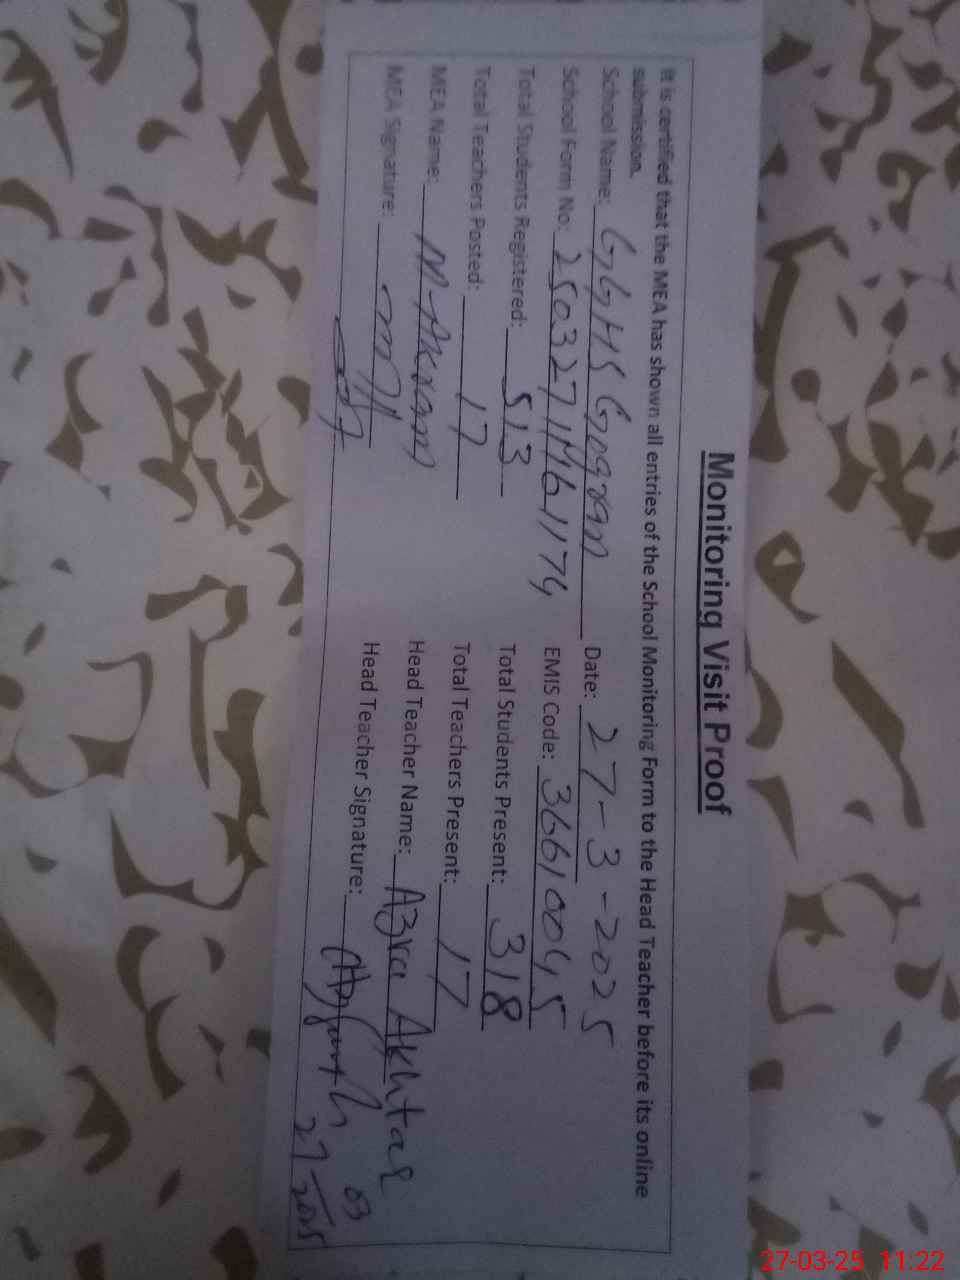 Monitoring Visit Proof
It is certified that the MEA has shown all entries of the School Monitoring Form to the Head Teacher before its online
submission.
School Name: GGHS Gogran Date: 27-3-2025
School Form No: EMIS Code: 36610045
Total Students Registered: 513 Total Students Present: 318
Total Teachers Posted: 17 Total Teachers Present: 17
MEA Name: M. Akram Head Teacher Name: Azra Akhtar
MEA Signature: Head Teacher Signature:
27-03-25 11:22